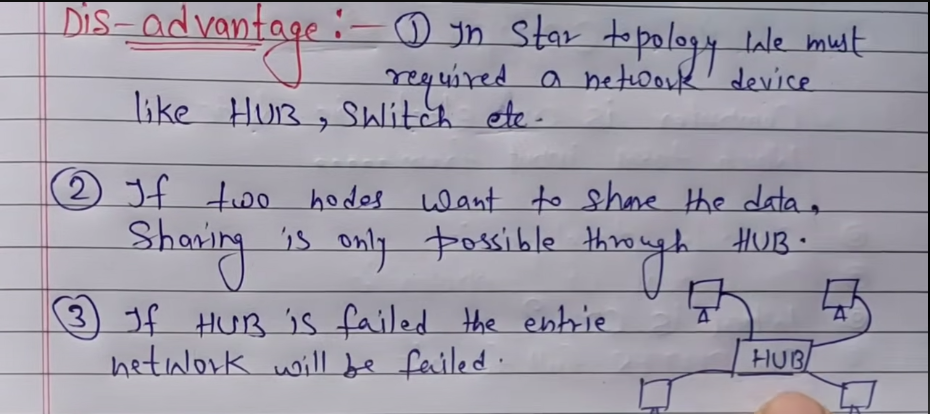 Dis-advantage :- ① In Star topology We must
required a network device
like HUB, Switch etc.
② If two nodes want to share the data,
Sharing is only possible through HUB.
③ If HUB is failed the entrie
network will be failed.
HUB